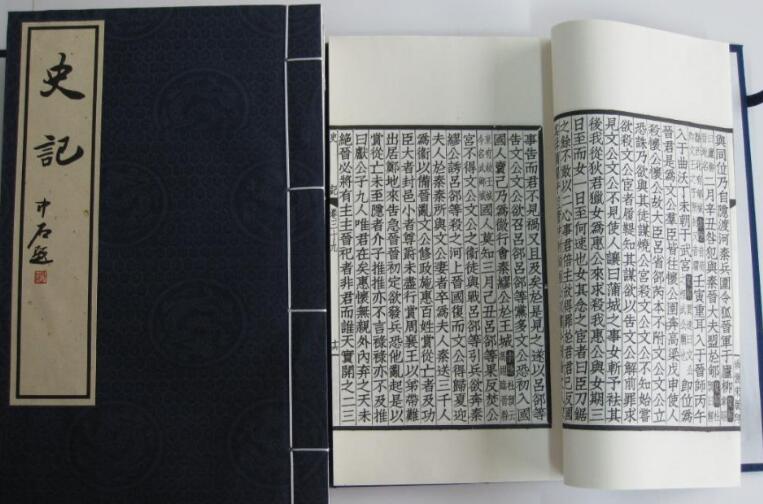 史記
中石題
與同位乃自隱渡河秦兵圍令狐晉軍于廬柳
二月辛丑咎犯與秦晉大夫盟於郇
壬寅重耳入于晉師丙午
入于曲沃丁未朝于武宮
即位為
晉君是為文公羣臣皆往懷公圉奔高梁戊申使人
殺懷公懷公故大臣呂省郤芮本不附文公文公立
恐誅乃欲與其徒謀燒公宮殺文公文公不知始嘗
欲殺文公宦者履鞮知其謀欲以告文公解前罪求
見文公文公不見使人讓曰蒲城之事女斬予袪其
後我從狄君獵女為惠公來求殺我惠公與女期三
日至而女一日至何速也女其念之宦者曰臣刀鋸
之餘不敢以二心事君倍主故得罪於君君已反國
事告而君不見禍又且及矣於是見之遂以呂郤等
告文公文公欲召呂郤呂郤等黨多文公恐初入國
國人賣己乃為微行會秦繆公於王城索隱杜預云
國人莫知三月己丑呂郤等果反焚公
宮不得文公文公之衛徒與戰呂郤等引兵欲奔秦
繆公誘呂郤等殺之河上晉國復而文公得歸夏迎
夫人於秦秦所與文公妻者卒為夫人秦送三千人
為衛以備晉亂文公修政施惠百姓賞從亡者及功
臣大者封邑小者尊爵未盡行賞周襄王以弟帶難
出居鄭地來告急晉晉初定欲發兵恐他亂起是以
賞從亡未至隱者介子推推亦不言祿祿亦不及推
曰獻公子九人唯君在矣惠懷無親外內弃之天未
絕晉必將有主主晉祀者非君而誰天實開之二三
史記 卷三十九